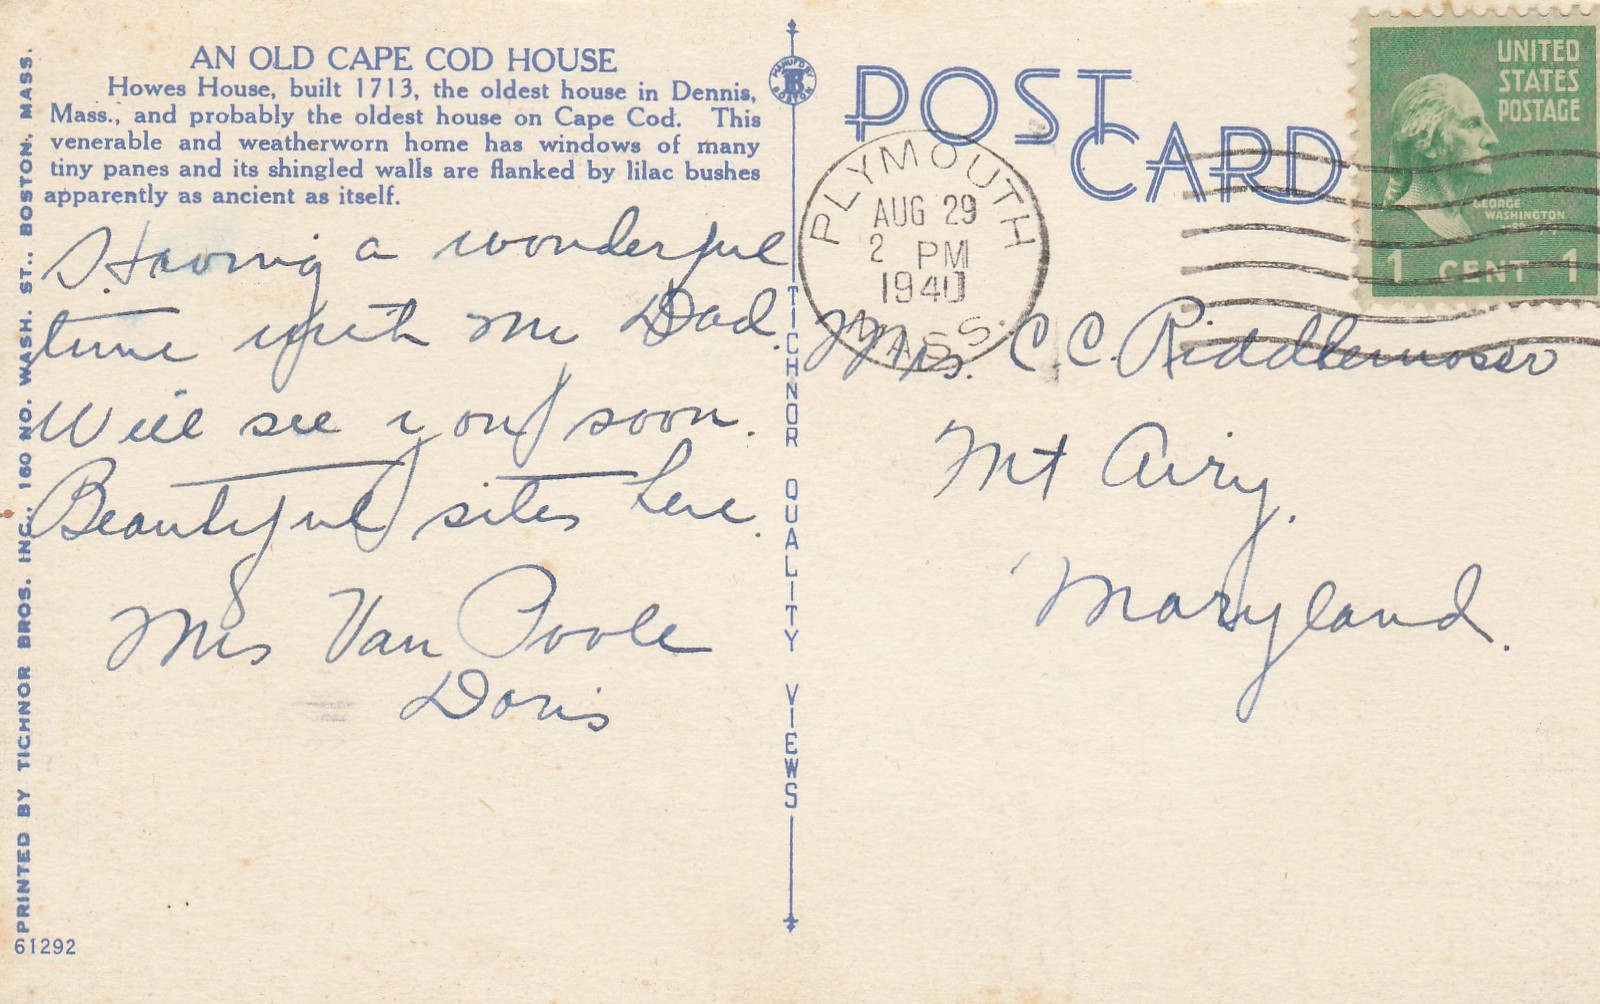 AN OLD CAPE COD HOUSE
Howes House, built 1713, the oldest house in Dennis,
Mass., and probably the oldest house on Cape Cod. This
venerable and weatherworn home has windows of many
tiny panes and its shingled walls are flanked by lilac bushes
apparently as ancient as itself.
Having a wonderful
time with Dad.
Will see you soon.
Beautiful sites here.
Mrs Van Poole
Doris
PRINTED BY TICHNOR BROS. INC., 160 NO. WASH. ST., BOSTON, MASS.
61292
MANUF'D BY
TB
BOSTON
TICHNOR QUALITY VIEWS
POST
CARD
PLYMOUTH
AUG 29
2 PM
1940
MASS.
UNITED
STATES
POSTAGE
GEORGE
WASHINGTON
1 CENT 1
Mrs. C. C. Riddlemoser
Mt Airy.
Maryland.